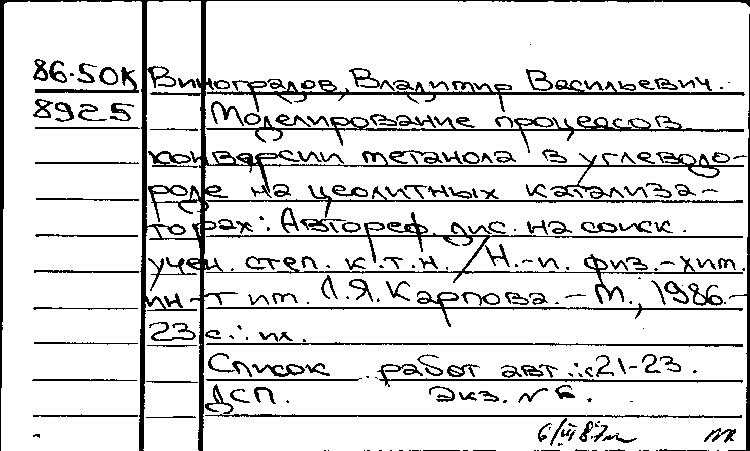 86-50К Виноградов, Владимир Васильевич.
8925 Моделирование процессов
конверсии метанола в углеводо-
роде на цеолитных катализа-
торах: Автореф. дис. на соиск.
учен. степ. к.т.н. / Н.-и. физ.-хим.
ин-т им. Л.Я. Карпова. - М., 1986.-
23 с.: ил.
Список работ авт.: с 21-23.
ДСП. Экз. № 6.
6/III 87